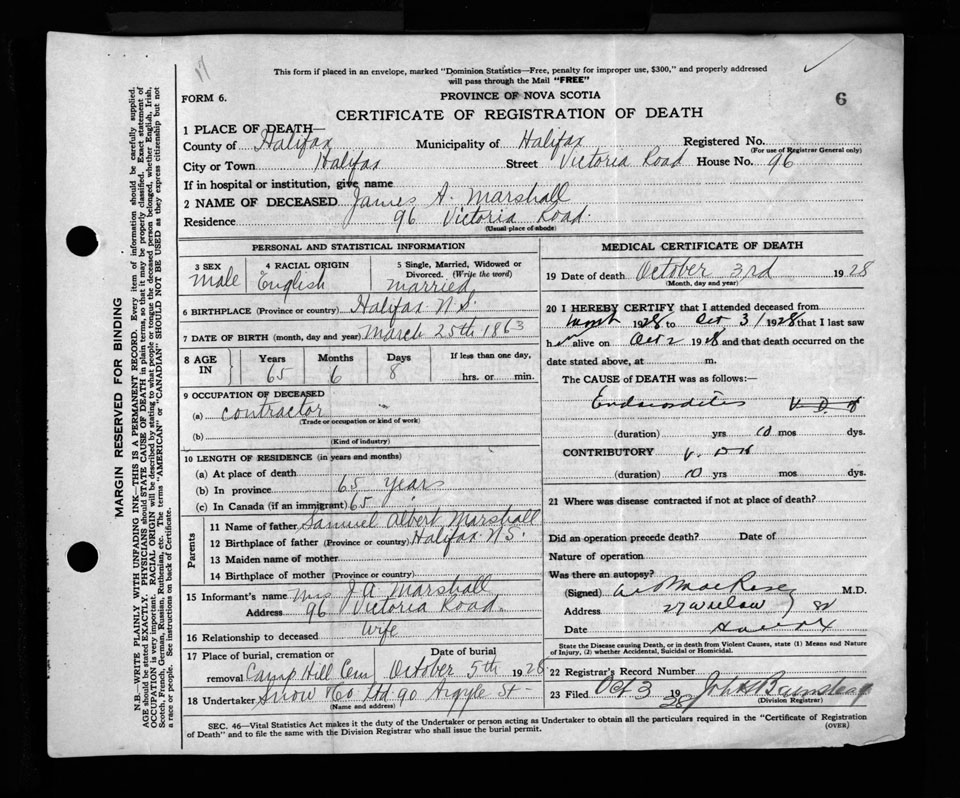 This form if placed in an envelope, marked "Dominion Statistics—Free, penalty for improper use, $300," and properly addressed
will pass through the Mail "FREE"
FORM 6.
PROVINCE OF NOVA SCOTIA
6
CERTIFICATE OF REGISTRATION OF DEATH
1 PLACE OF DEATH—
County of Halifax Municipality of Halifax Registered No.
(For use of Registrar General only)
City or Town Halifax Street Victoria Road House No. 96
If in hospital or institution, give name
2 NAME OF DECEASED James A. Marshall
Residence 96 Victoria Road.
(Usual place of abode)
PERSONAL AND STATISTICAL INFORMATION
3 SEX 4 RACIAL ORIGIN 5 Single, Married, Widowed or
Divorced. (Write the word)
Male English married
6 BIRTHPLACE (Province or country) Halifax N.S.
7 DATE OF BIRTH (month, day and year) March 25th 1863
8 AGE IN Years Months Days If less than one day,
65 6 8 hrs. or min.
9 OCCUPATION OF DECEASED
(a) contractor
(Trade or occupation or kind of work)
(b)
(Kind of industry)
10 LENGTH OF RESIDENCE (in years and months)
(a) At place of death
(b) In province 65 years
(c) In Canada (if an immigrant) 65
Parents
11 Name of father Samuel Albert Marshall
12 Birthplace of father (Province or country) Halifax N.S.
13 Maiden name of mother
14 Birthplace of mother (Province or country)
15 Informant's name Mrs J A Marshall
Address 96 Victoria Road.
16 Relationship to deceased Wife
17 Place of burial, cremation or Date of burial
removal Camp Hill Cem October 5th 1928
18 Undertaker Snow & Co Ltd 90 Argyle St
(Name and address)
MEDICAL CERTIFICATE OF DEATH
19 Date of death October 3rd 1928
(Month, day and year)
20 I HEREBY CERTIFY that I attended deceased from
1928 to Oct 3 1928 that I last saw
h alive on Oct 2 1928 and that death occurred on the
date stated above, at m.
The CAUSE of DEATH was as follows:—
Endocarditis
(duration) yrs 10 mos dys.
CONTRIBUTORY
(duration) 10 yrs mos dys.
21 Where was disease contracted if not at place of death?
Did an operation precede death? Date of
Nature of operation
Was there an autopsy?
(Signed) M.D.
Address
Date
State the Disease causing Death, or in death from Violent Causes, state (1) Means and Nature
of Injury, (2) whether Accidental, Suicidal or Homicidal.
22 Registrar's Record Number
23 Filed Oct 3 1928
(Division Registrar)
SEC. 46—Vital Statistics Act makes it the duty of the Undertaker or person acting as Undertaker to obtain all the particulars required in the "Certificate of Registration
of Death" and to file the same with the Division Registrar who shall issue the burial permit.
(OVER)
MARGIN RESERVED FOR BINDING
N.B.—WRITE PLAINLY WITH UNFADING INK—THIS IS A PERMANENT RECORD. Every item of information should be carefully supplied.
AGE should be stated EXACTLY. PHYSICIANS should STATE CAUSE OF DEATH in plain terms, so that it may be properly classified. Exact statement of
OCCUPATION is very important. RACIAL ORIGIN will be described by stating to what people or tongue the deceased person belonged, whether English, Irish,
Scotch, French, German, Russian, Ruthenian, etc. The terms "AMERICAN" or "CANADIAN" SHOULD NOT BE USED as they express citizenship but not
a race or people. See instructions on back of Certificate.